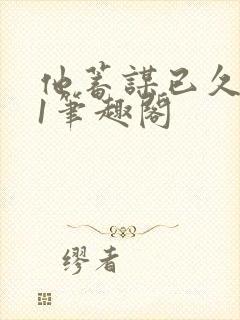 他蓄謀已久
1筆趣閣
缪者